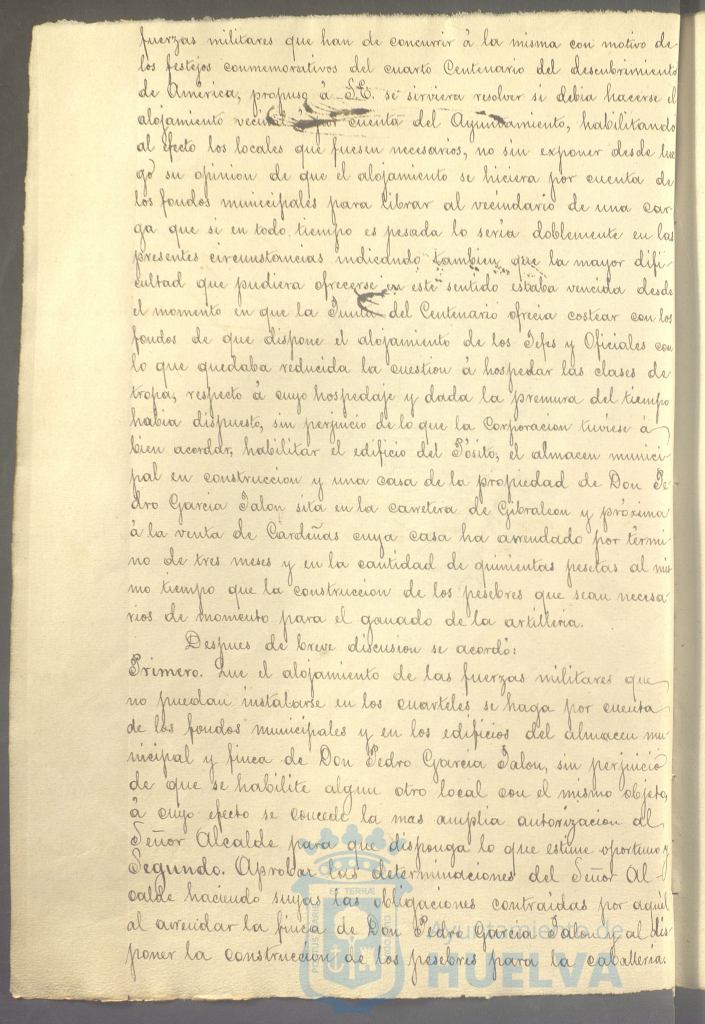 fuerzas militares que han de concurrir á la misma con motivo de
los festejos conmemorativos del cuarto Centenario del descubrimiento
de América, propuso á S.E. se sirviera resolver si debia hacerse el
alojamiento vecinal ó por cuenta del Ayuntamiento, habilitando
al efecto los locales que fuesen necesarios, no sin exponer desde lue
go su opinion de que el alojamiento se hiciera por cuenta de
los fondos municipales para librar al vecindario de una car
ga que si en todo tiempo es pesada lo seria doblemente en las
presentes circunstancias indicando tambien que la mayor difi
cultad que pudiera ofrecerse en este sentido estaba vencida desde
el momento en que la Junta del Centenario ofrecia costear con los
fondos de que dispone el alojamiento de los Jefes y Oficiales con
lo que quedaba reducida la cuestion á hospedar las clases de
tropa, respecto á cuyo hospedaje y dada la premura del tiempo
habia dispuesto, sin perjuicio de lo que la Corporacion tuviese á
bien acordar, habilitar el edificio del Pósito, el almacen munici
pal en construccion y una casa de la propiedad de Don Pe
dro Garcia Jalon sita en la carretera de Gibraleon y próxima
á la venta de Cardeñas cuya casa ha arrendado por térmi
no de tres meses y en la cantidad de quinientas pesetas al mis
mo tiempo que la construccion de los pesebres que sean necesa
rios de momento para el ganado de la artilleria.
Despues de breve discusion se acordó:
Primero. Que el alojamiento de las fuerzas militares que
no puedan instalarse en los cuarteles se haga por cuenta
de los fondos municipales y en los edificios del almacen mu
nicipal y finca de Don Pedro Garcia Jalon, sin perjuicio
de que se habilite algun otro local con el mismo objeto,
á cuyo efecto se concede la mas amplia autorizacion al
Señor Alcalde para que disponga lo que estime oportuno y
Segundo. Aprobar las determinaciones del Señor Al-
calde haciendo suyas las obligaciones contraidas por aquél
al arrendar la finca de Don Pedro Garcia Jalon y al dis
poner la construccion de los pesebres para la caballeria.
Ayuntamiento de
HUELVA